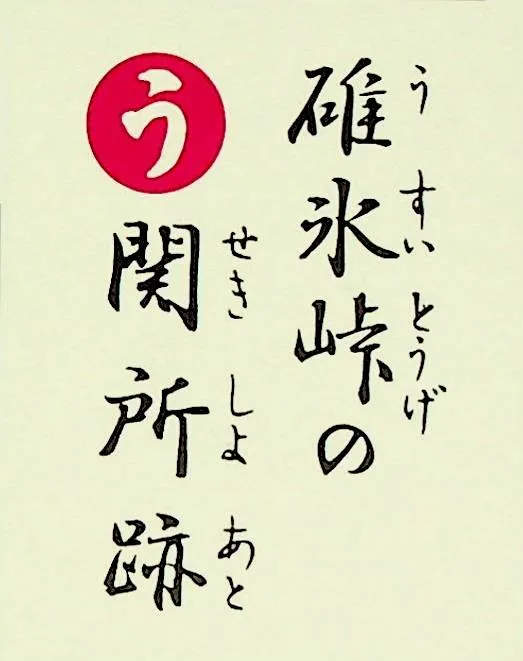 碓氷峠の
うすいとうげ
う
関所跡
せきしよあと